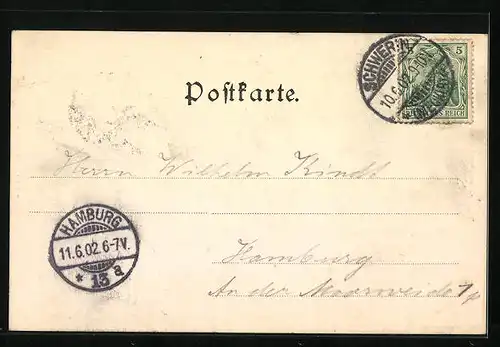 SCHWERIN
5
10.6.02
REICH
Postkarte.
Herrn Wilhelm Kindt
HAMBURG
11.6.02.6-7V.
* 13 a
Hamburg
An der Moorweide 1